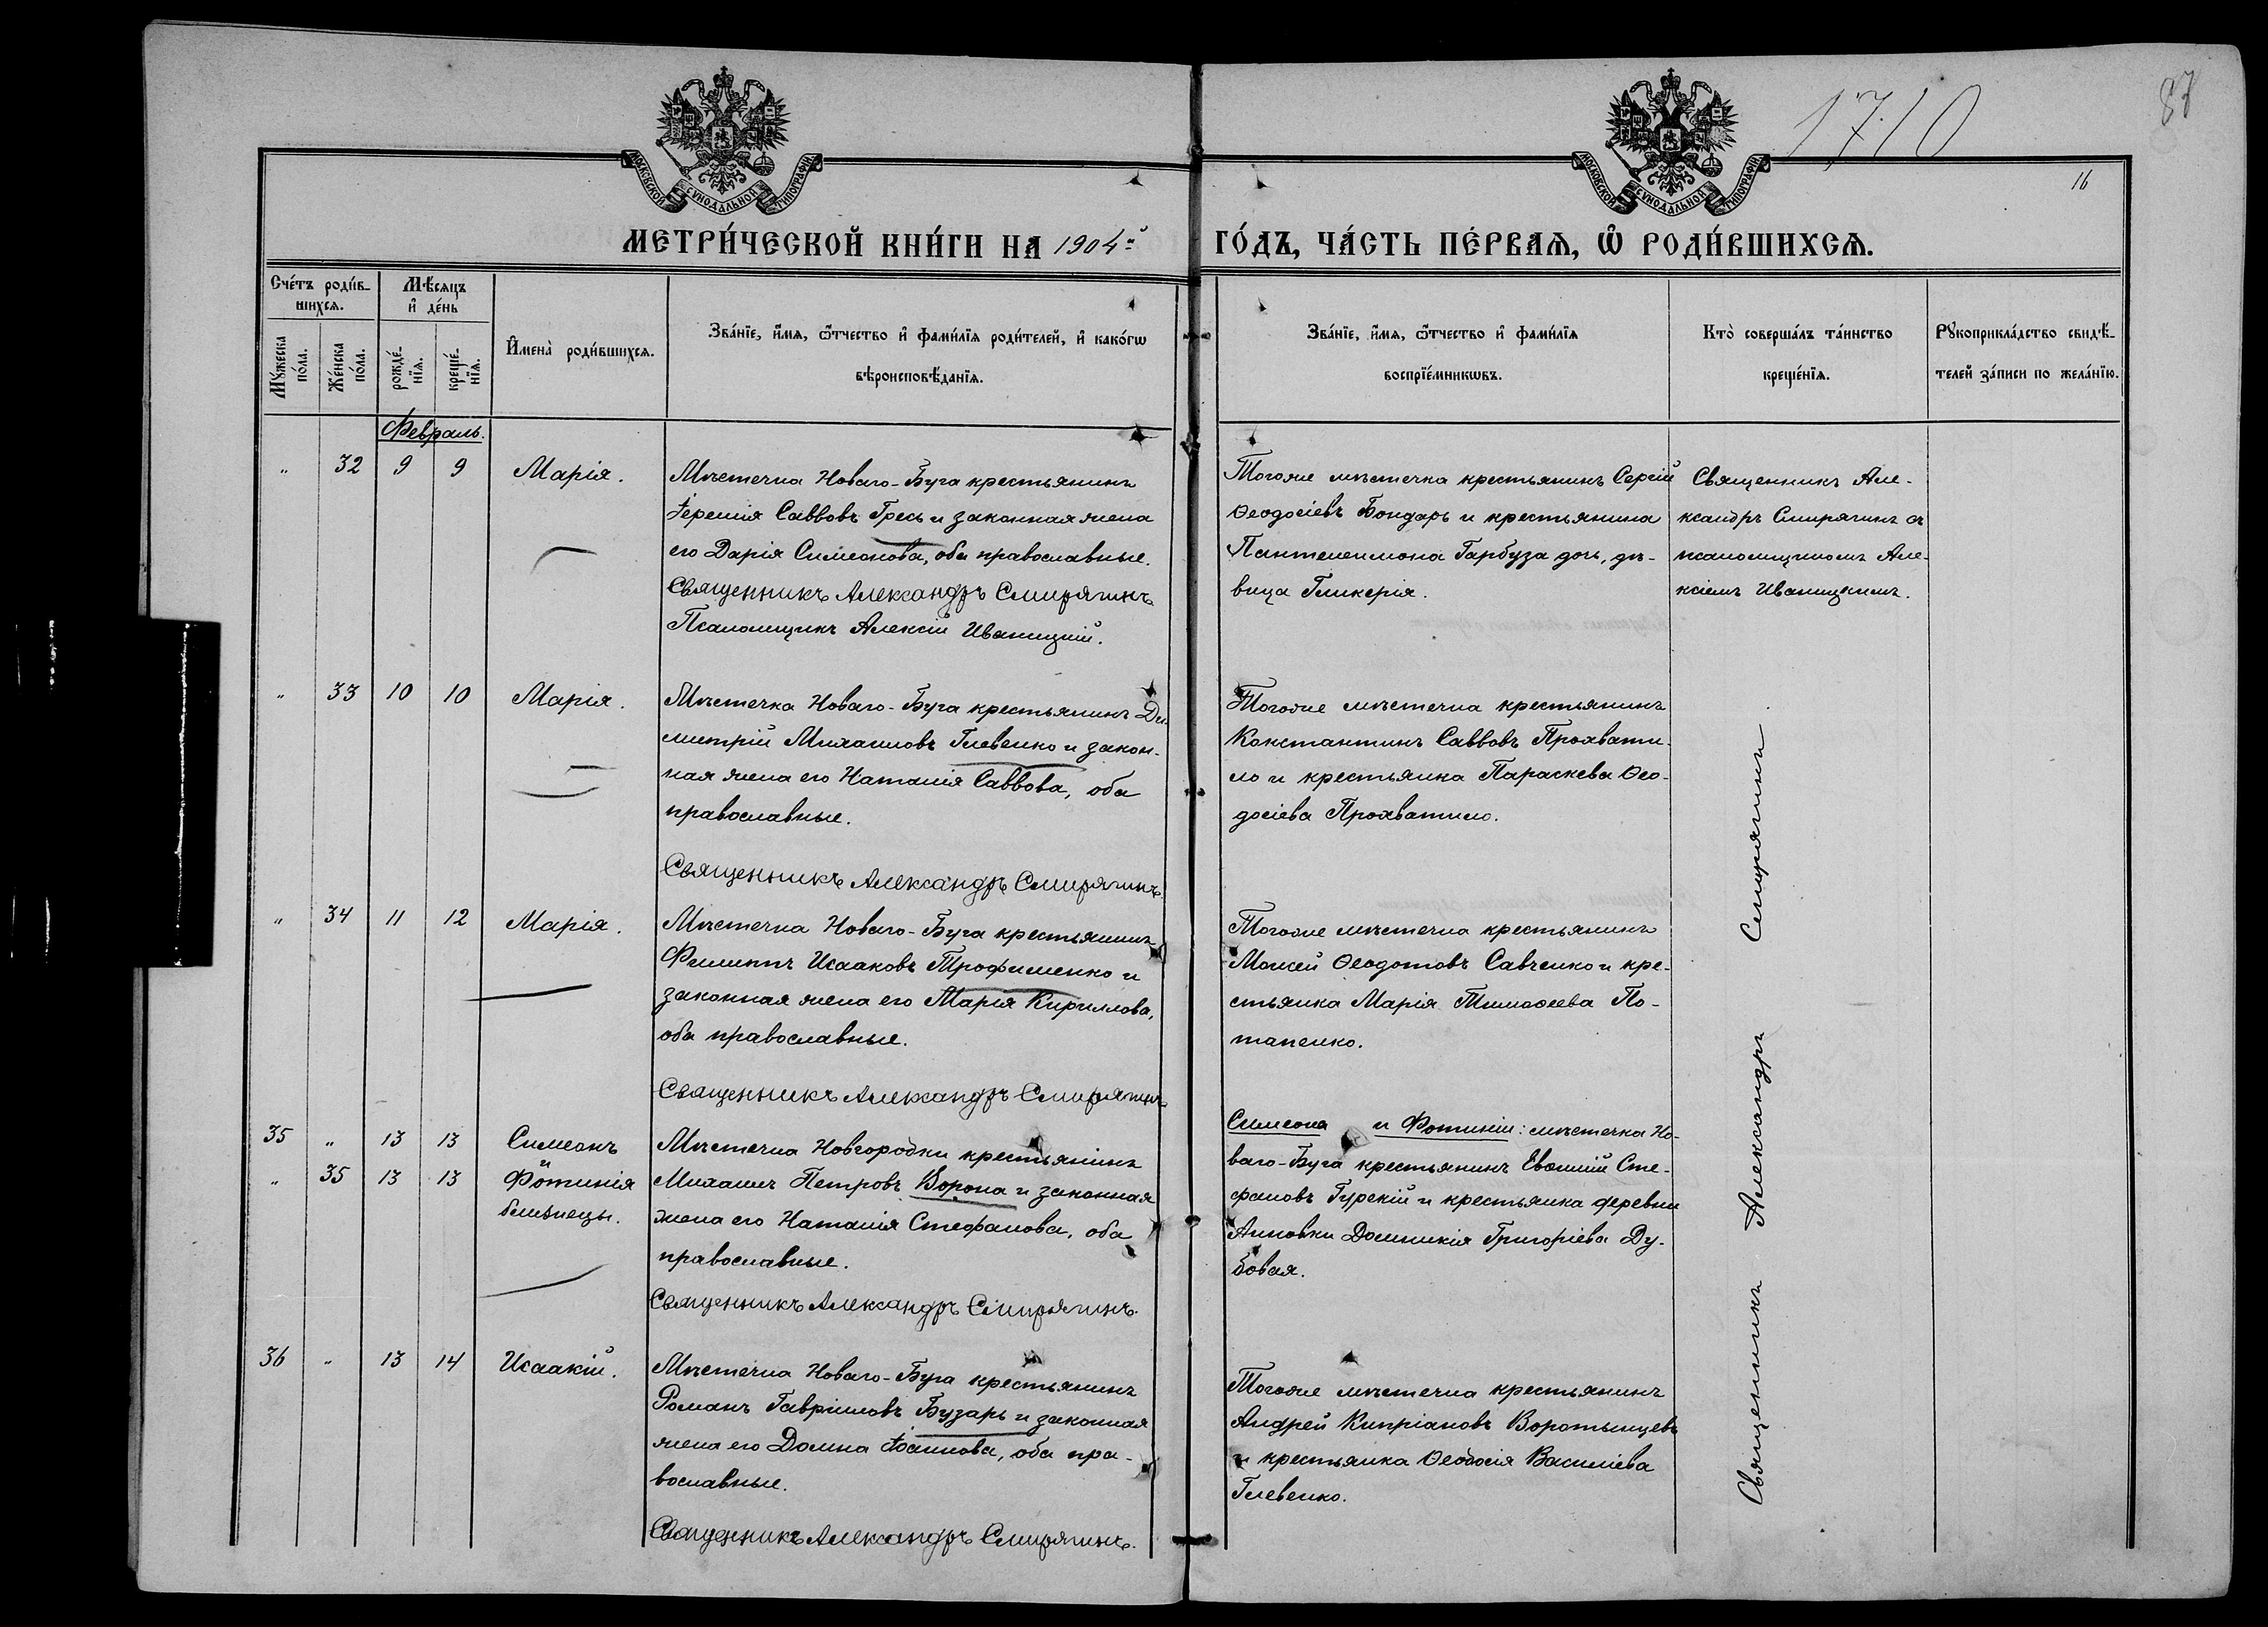 1710
87
16
МОСКОВСКОЙ СѴНОДАЛЬНОЙ ТИПОГРАФІИ
МОСКОВСКОЙ СѴНОДАЛЬНОЙ ТИПОГРАФІИ
МЕТРИ́ЧЕСКОЙ КНИ́ГИ НА 1904й ГО́ДЪ, ЧА́СТЬ ПЕ́РВАѦ, Ѡ҆ РОДИ́ВШИХСѦ.
Сче́тъ роди́в-
шихсѧ.
Мꙋ́жеска по́ла.
Же́нска по́ла.
Мѣ́сѧцъ и҆ де́нь
рожде́-нїѧ.
креще́-нїѧ.
И҆мена̀ роди́вшихсѧ.
Зва́нїе, и҆́мѧ, ѻ҆́тчество и҆ фами́лїѧ роди́телей, и҆ како́гѡ
вѣроисповѣ́данїѧ.
Зва́нїе, и҆́мѧ, ѻ҆́тчество и҆ фами́лїѧ
воспрїе́мникѡвъ.
Кто̀ соверша́лъ та́инство
креще́нїѧ.
Рꙋкоприкла́дство свидѣ́-
телей за́писи по жела́нїю.
Февраль.
" 32 9 9 Марія.
Мѣстечка Новаго-Буга крестьянинъ
Іеремія Саввовъ Гресь и законная жена
его Дарія Симеонова, оба православные.
Священникъ Александръ Смирягинъ
Псаломщикъ Алексій Иваницкій.
Тогоже мѣстечка крестьянинъ Сергій
Ѳеодосіевъ Бондарь и крестьянина
Пантелеимона Гарбуза дочь, дѣ-
вица Гликерія.
Священникъ Але-
ксандръ Смирягинъ съ
псаломщикомъ Але-
ксіемъ Иваницкимъ.
" 33 10 10 Марія.
Мѣстечка Новаго-Буга крестьянинъ Ди-
митрій Михаиловъ Глевенко и закон-
ная жена его Наталія Саввова, оба
православные.
Священникъ Александръ Смирягинъ
Тогоже мѣстечка крестьянинъ
Константинъ Саввовъ Прохвати-
ло и крестьянка Параскева Ѳео-
досіева Прохватило.
" 34 11 12 Марія.
Мѣстечка Новаго-Буга крестьянинъ
Филиппъ Исааковъ Трофименко и
законная жена его Марія Кириллова,
оба православные.
Священникъ Александръ Смирягинъ
Тогоже мѣстечка крестьянинъ
Моисей Ѳеодотовъ Савченко и кре-
стьянка Марія Тимоѳеева По-
тапенко.
35 " 13 13 Симеонъ
и
" 35 13 13 Фотинія
близнецы.
Мѣстечка Новгородки крестьянинъ
Михаилъ Петровъ Ворона и законная
жена его Наталія Стефанова, оба
православные.
Священникъ Александръ Смирягинъ.
Симеона и Фотиніи: мѣстечка Но-
ваго-Буга крестьянинъ Евѳимій Сте-
фановъ Гурскій и крестьянка деревни
Анновки Домникія Григоріева Ду-
бовая.
36 " 13 14 Исаакій.
Мѣстечка Новаго-Буга крестьянинъ
Романъ Гавріиловъ Бузарь и законная
жена его Домна Іоаннова, оба пра-
вославные.
Священникъ Александръ Смирягинъ.
Тогоже мѣстечка крестьянинъ
Андрей Кипріановъ Воротынцевъ
и крестьянка Ѳеодосія Василіева
Глевенко.
Священникъ Александръ Смирягинъ